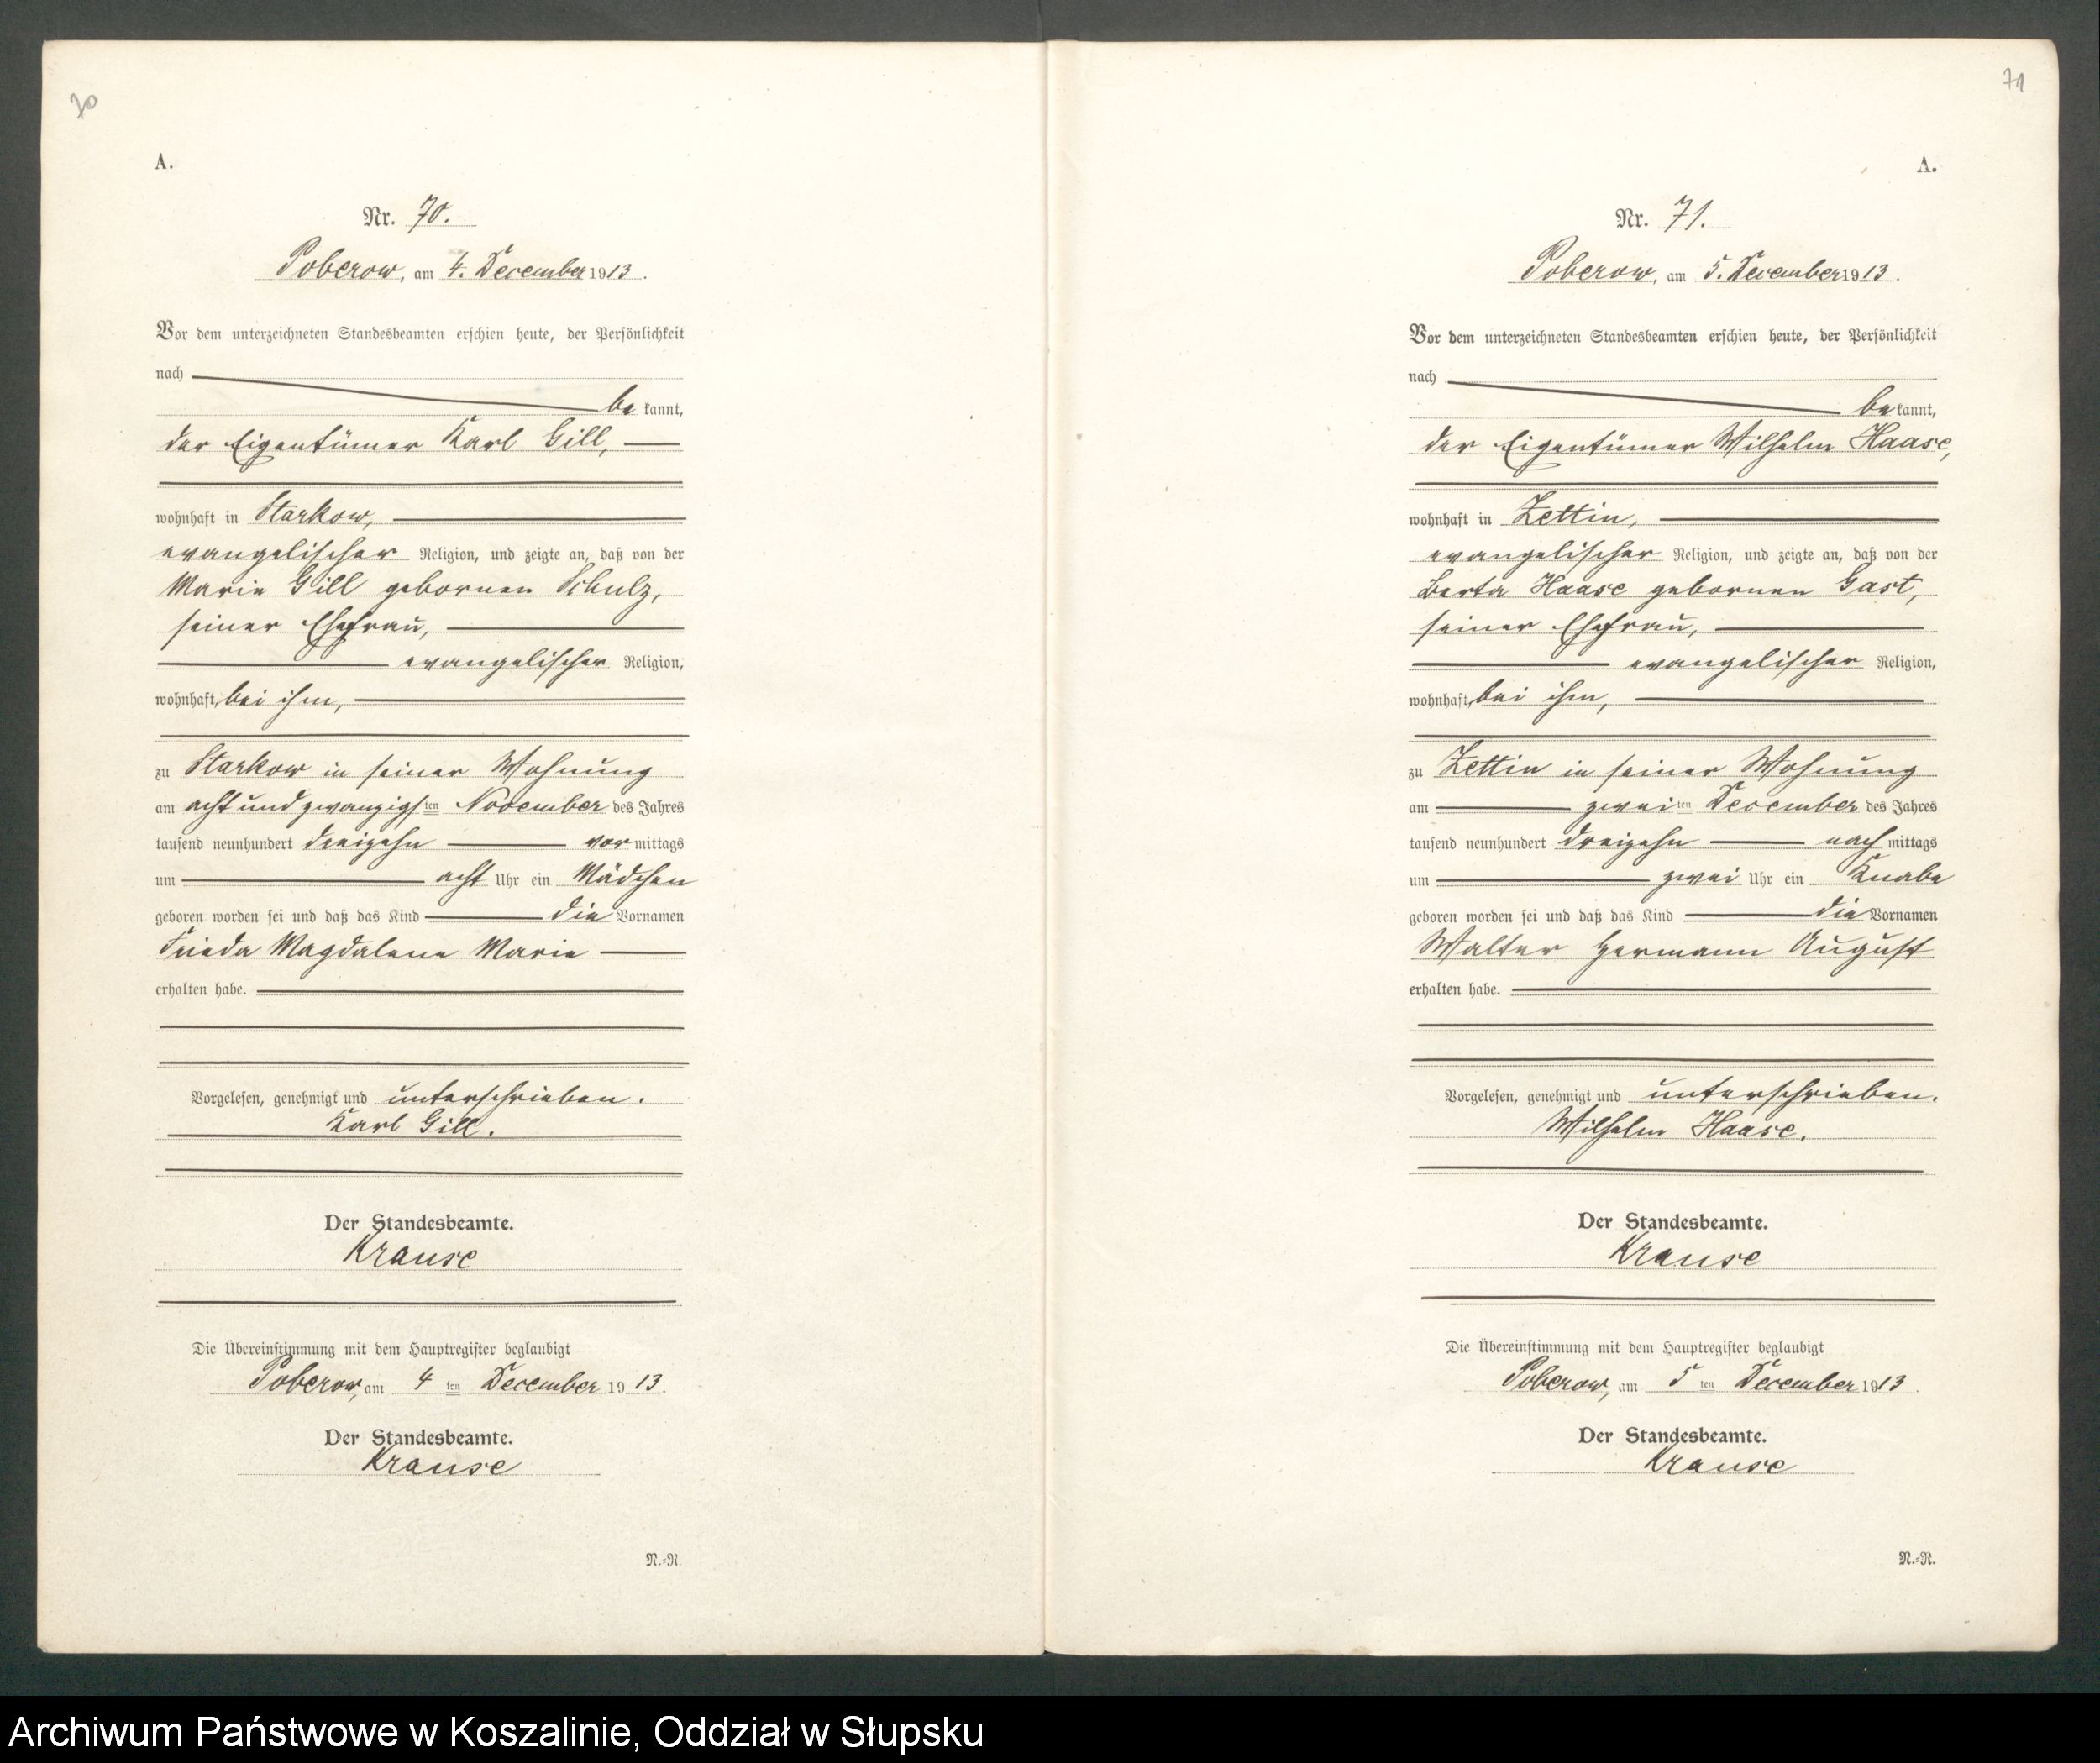 70
A.
Nr. 70.
Poberow, am 4. December 1913.
Vor dem unterzeichneten Standesbeamten erschien heute, der Persönlichkeit
nach
be kannt,
der Eigentümer Karl Gill,
wohnhaft in Starkow,
evangelischer Religion, und zeigte an, daß von der
Marie Gill gebornen Schulz,
seiner Ehefrau,
evangelischer Religion,
wohnhaft bei ihm,
zu Starkow in seiner Wohnung
am acht und zwanzigsten November des Jahres
tausend neunhundert dreizehn vormittags
um acht Uhr ein Mädchen
geboren worden sei und daß das Kind die Vornamen
Frieda Magdalene Marie
erhalten habe.
Vorgelesen, genehmigt und unterschrieben.
Karl Gill.
Der Standesbeamte.
Krause
Die Übereinstimmung mit dem Hauptregister beglaubigt
Poberow, am 4 ten December 1913.
Der Standesbeamte.
Krause
N.=R.
71
A.
Nr. 71.
Poberow, am 5. December 1913.
Vor dem unterzeichneten Standesbeamten erschien heute, der Persönlichkeit
nach
be kannt,
der Eigentümer Wilhelm Haase,
wohnhaft in Zettin,
evangelischer Religion, und zeigte an, daß von der
Berta Haase gebornen Gast,
seiner Ehefrau,
evangelischer Religion,
wohnhaft bei ihm,
zu Zettin in seiner Wohnung
am zweiten December des Jahres
tausend neunhundert dreizehn nachmittags
um zwei Uhr ein Knabe
geboren worden sei und daß das Kind die Vornamen
Walter Hermann August
erhalten habe.
Vorgelesen, genehmigt und unterschrieben.
Wilhelm Haase.
Der Standesbeamte.
Krause
Die Übereinstimmung mit dem Hauptregister beglaubigt
Poberow, am 5 ten December 1913.
Der Standesbeamte.
Krause
N.=R.
Archiwum Państwowe w Koszalinie, Oddział w Słupsku